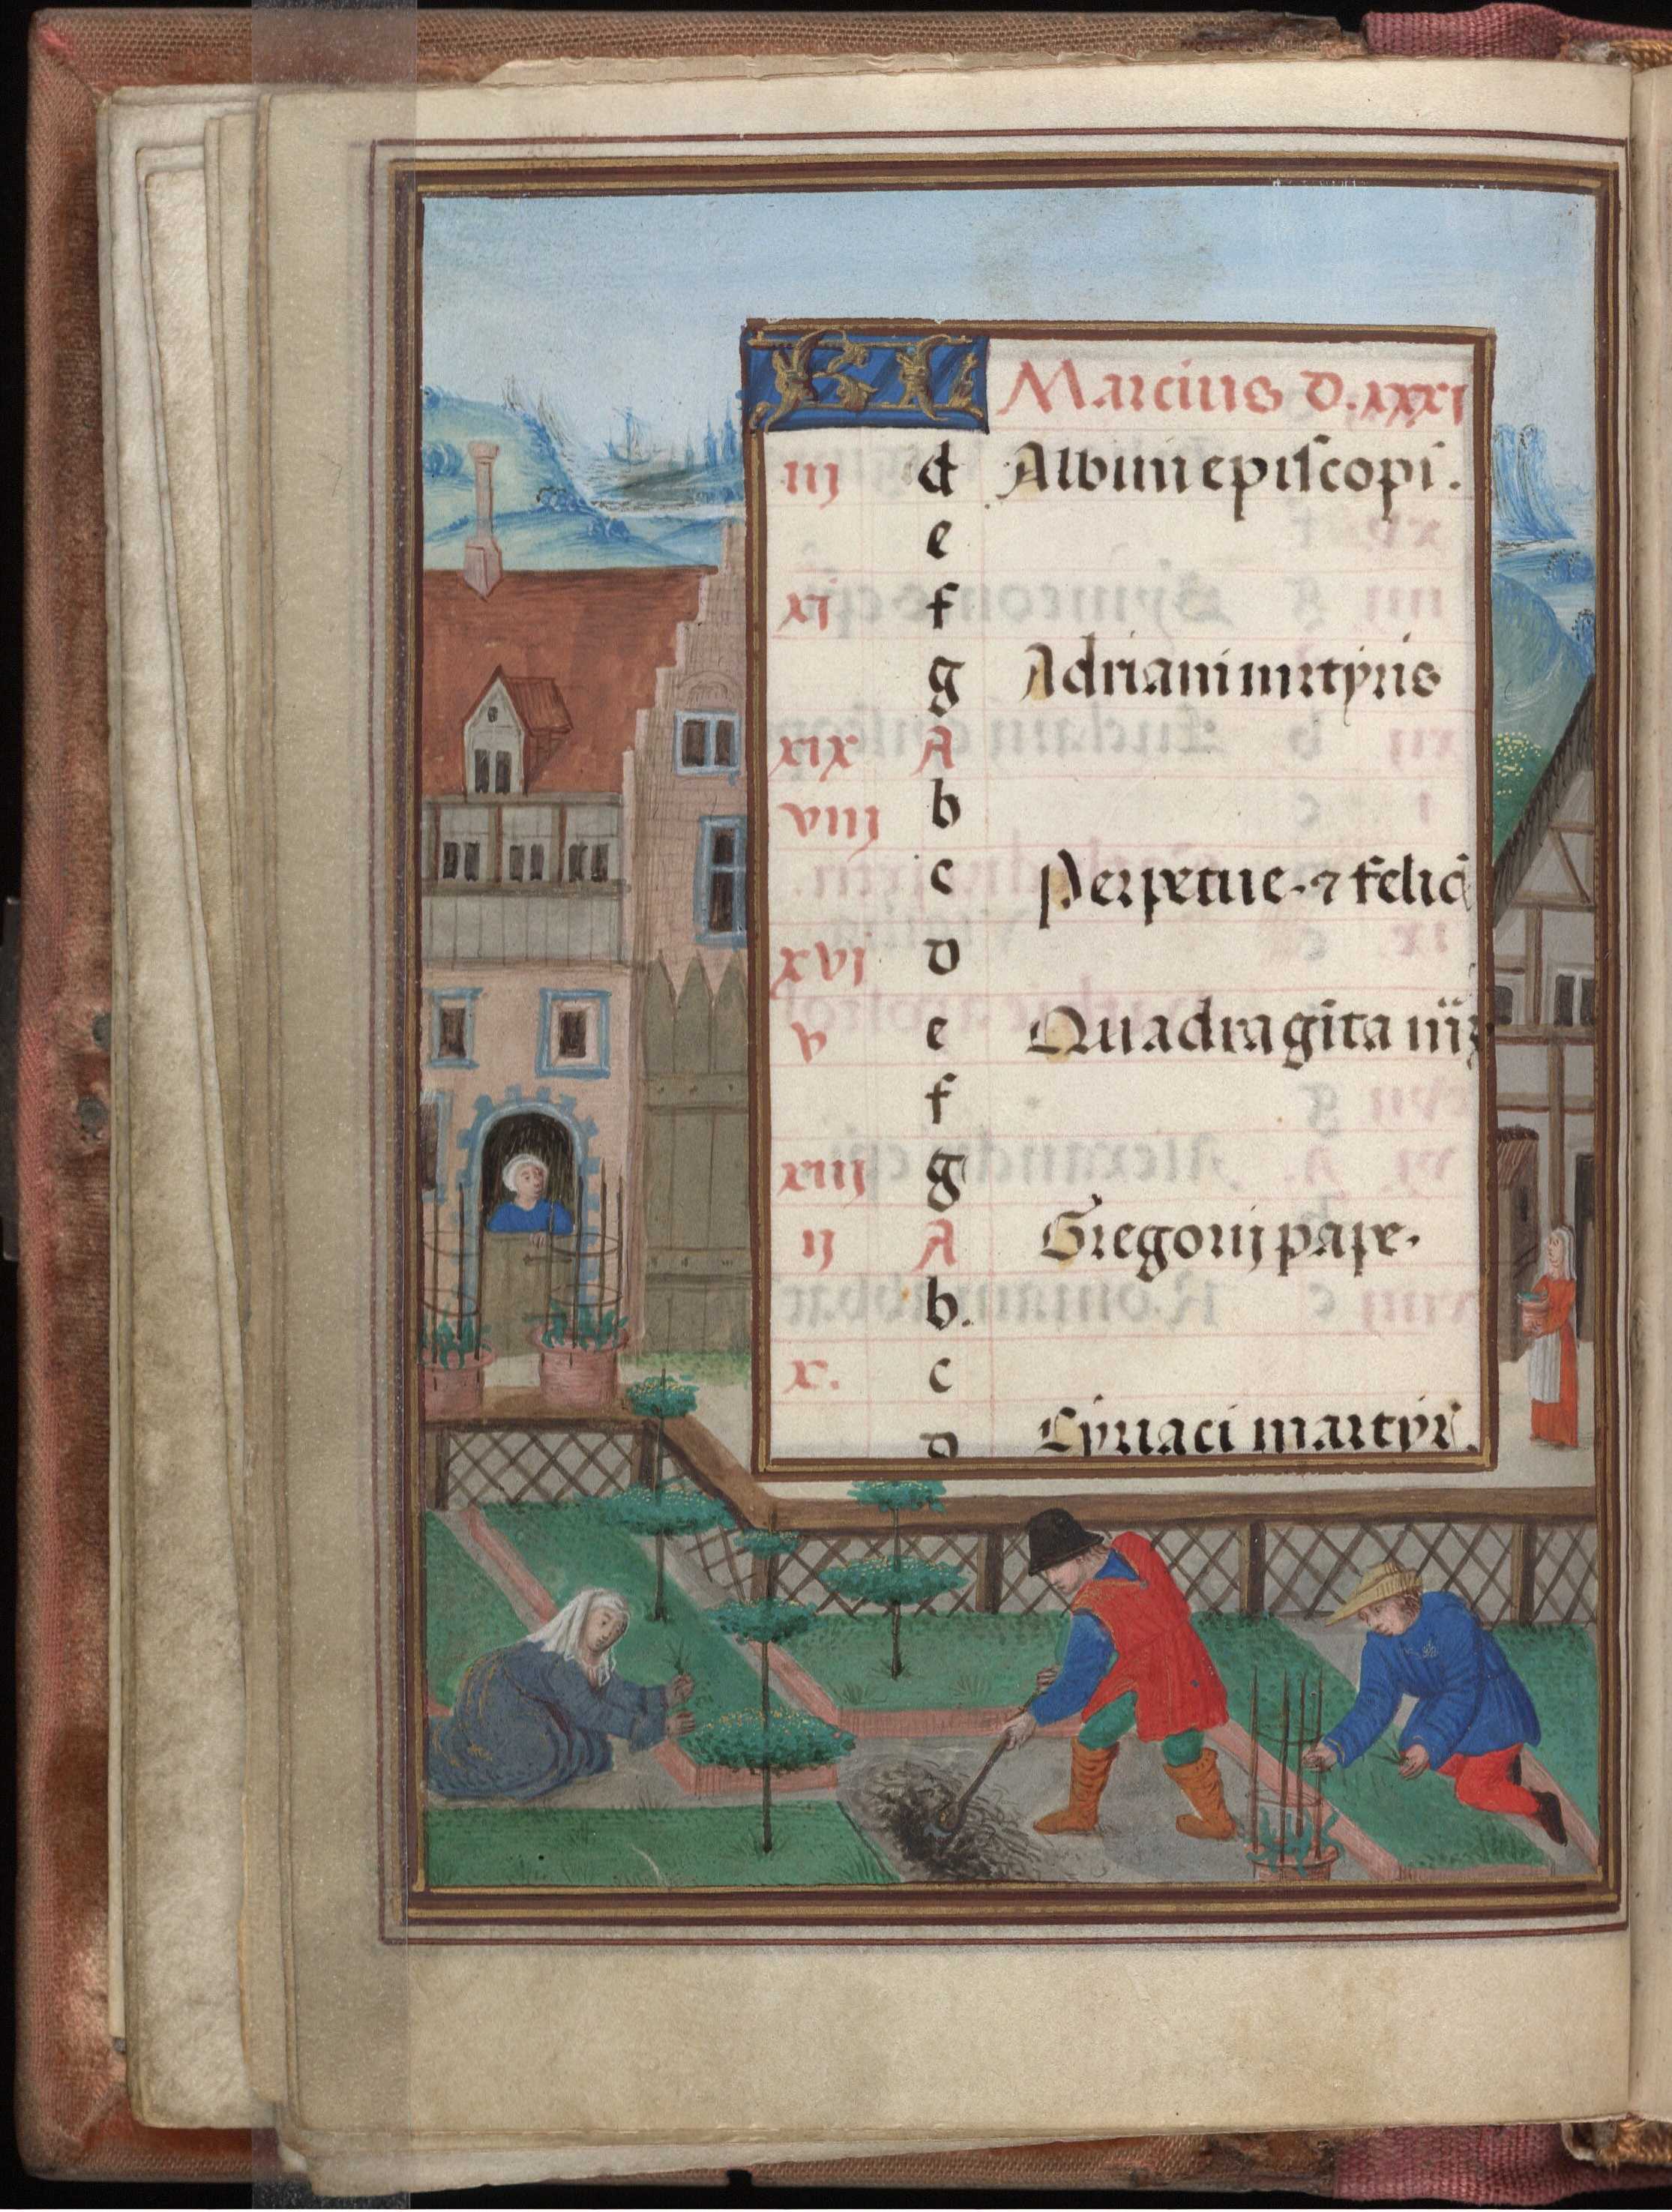 KL Marcius D. xxxi
iij d Albini episcopi.
e
xi f
g Adriani mrtyris
xix A
viij b
c Perpetue. ⁊ felici
xvj d
v e Quadragita m̃
f
xiij g
ij A Gregorij pape.
b.
x. c
d Cyriaci martyr.